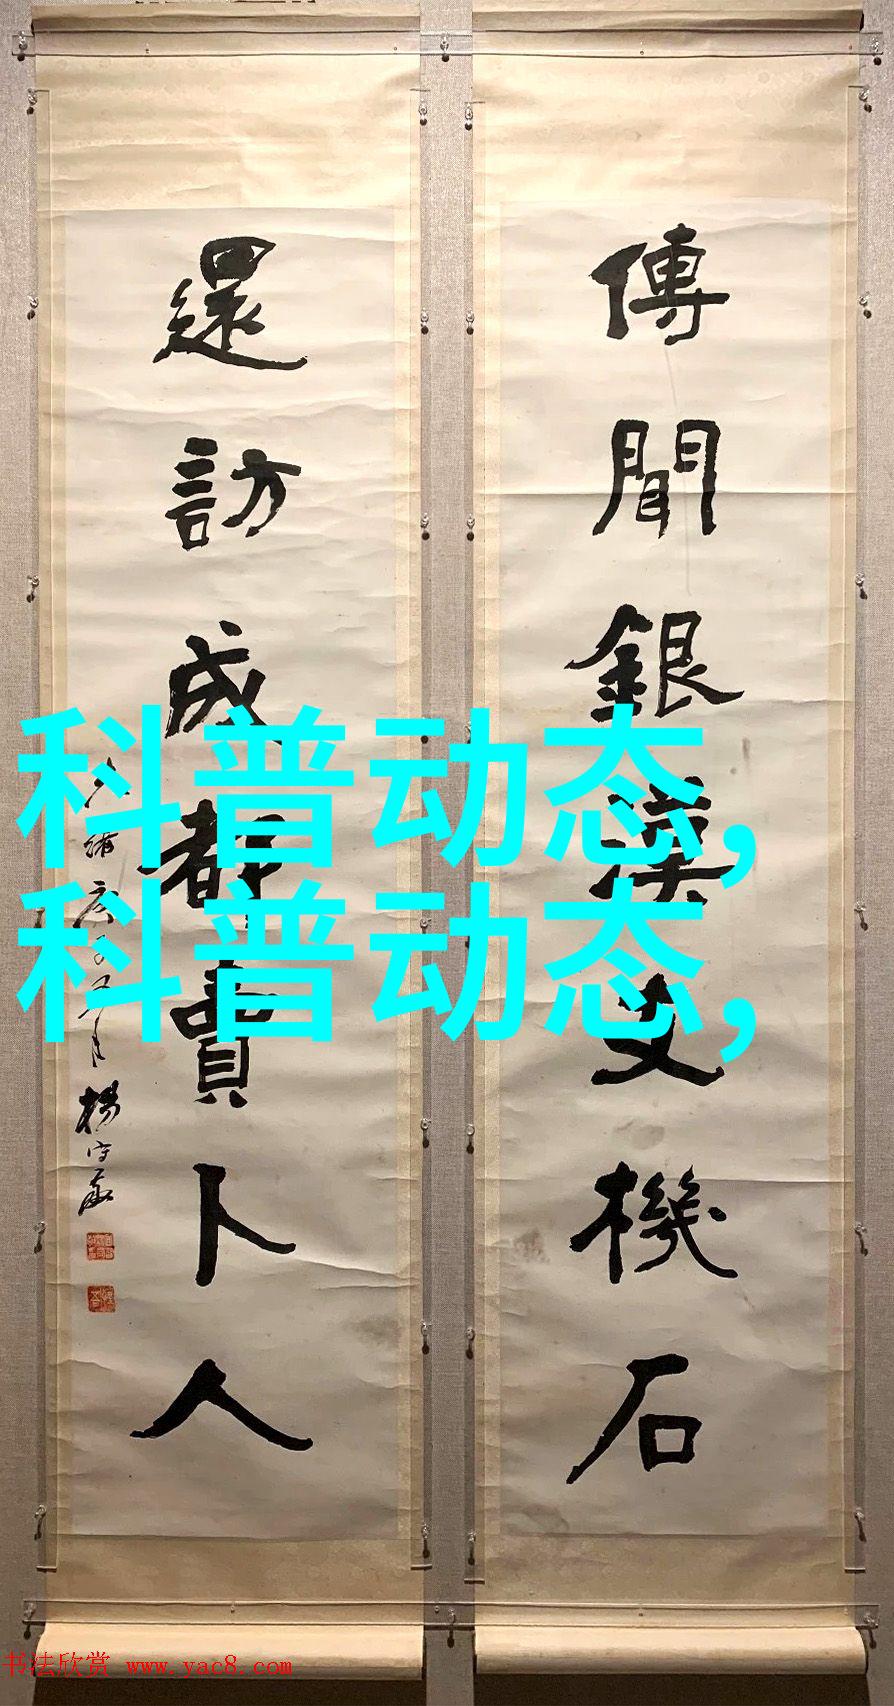 傳聞銀漢支機石
還訪成都賣卜人
光緒庚子五月楊守敬
科普动态,
科普动态,
书法欣赏 www.yac8.com